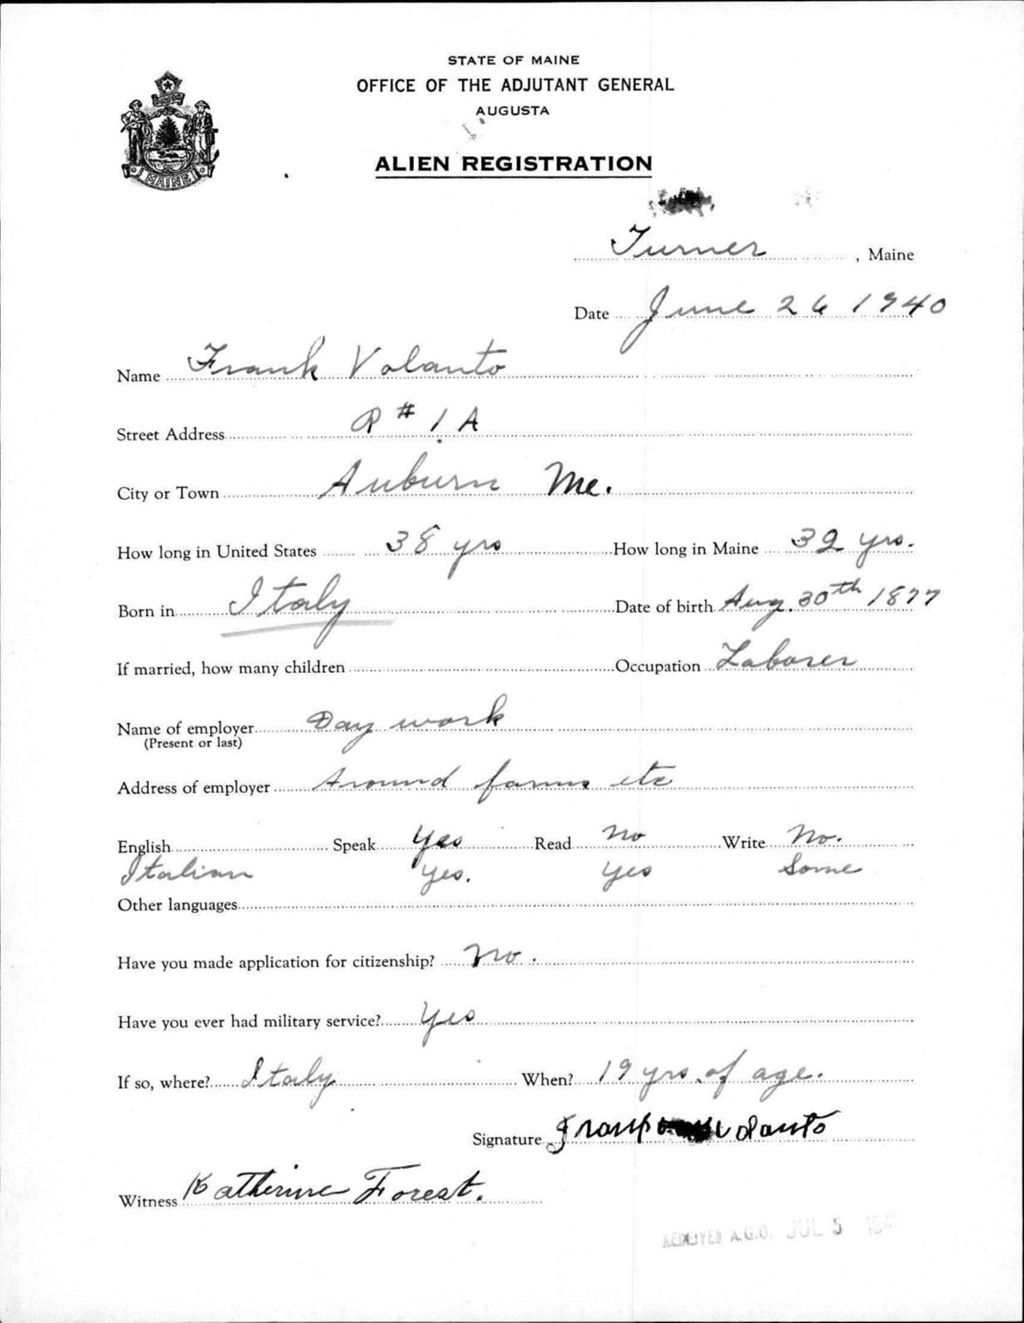 STATE OF MAINE
OFFICE OF THE ADJUTANT GENERAL
AUGUSTA
ALIEN REGISTRATION
MAINE
Turner, Maine
Date June 26 1940
Name Frank Volanto
Street Address R # 1 A
City or Town Auburn Me.
How long in United States 38 yrs How long in Maine 32 yrs.
Born in Italy Date of birth Aug. 30th 1877
If married, how many children Occupation Laborer
Name of employer Day work
(Present or last)
Address of employer Around farms etc
English Speak Yes Read No Write No.
Italian Yes. Yes Some
Other languages
Have you made application for citizenship? No.
Have you ever had military service? Yes
If so, where? Italy When? 19 yrs. of age.
Signature Frank Volanto
Witness Katherine Forest.
RECEIVED A.G.O. JUL 5 1940